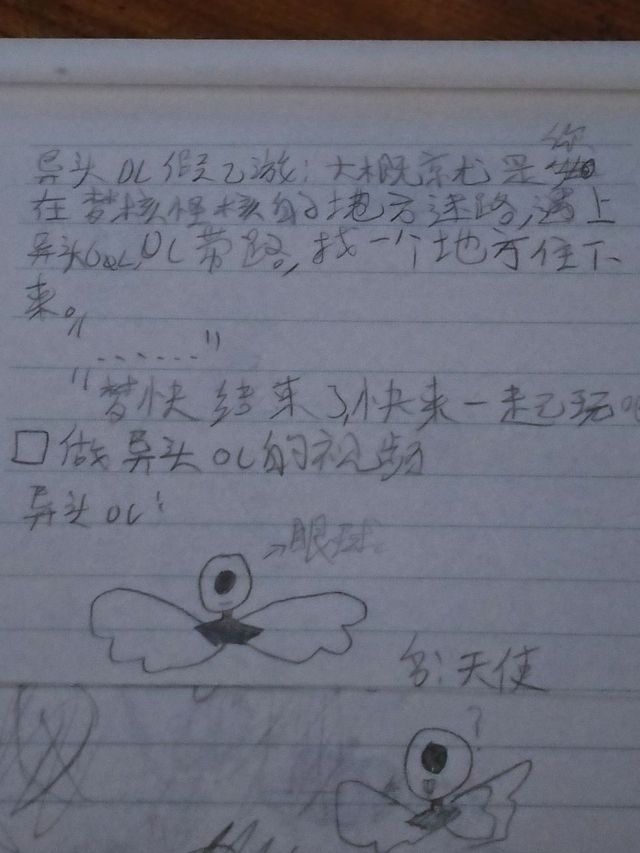 你
异头OC假乙游：大概京尤是
在梦核怪核的地方迷路，遇上
异头OC，OC带路，找一个地方住下
来。"
……"
"梦快结束了，快来一起玩吧
□做异头OC的视频
异头OC：
→眼球
名：天使
？